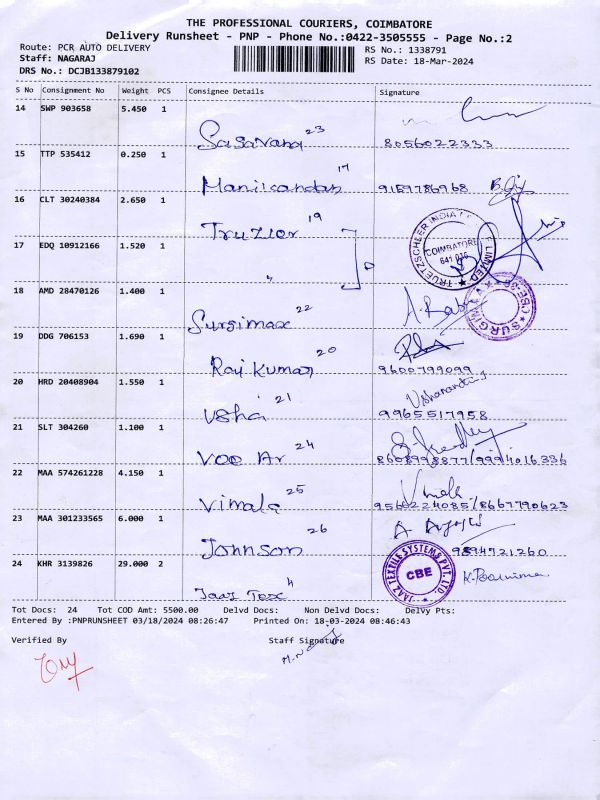 THE PROFESSIONAL COURIERS, COIMBATORE
Delivery Runsheet - PNP - Phone No.:0422-3505555 - Page No.:2
Route: PCR AUTO DELIVERY
RS No.: 1338791
Staff: NAGARAJ
RS Date: 18-Mar-2024
DRS No.: DCJB133879102
S No Consignment No Weight PCS Consignee Details Signature
14 SWP 903658 5.450 1
23
8056022333
15 TTP 535412 0.250 1
Manikandan 17
9159786968
16 CLT 30240384 2.650 1
Truzler 19
TRUETZSCHLER INDIA LIMITED
COIMBATORE
17 EDQ 10912166 1.520 1
"
18 AMD 28470126 1.400 1
Surgimax 22
19 DDG 706153 1.690 1
Raj Kumar 20
9600799099
20 HRD 20408904 1.550 1
Usha 21
9965517958
21 SLT 304260 1.100 1
Voo Ar 24
8608998877/9994016336
22 MAA 574261228 4.150 1
Vimala 25
9566224085/8667790623
23 MAA 301233565 6.000 1
Johnson 26
9894721260
24 KHR 3139826 29.000 2
Jaaz Tex 4
JAAZ TEXTILE SYSTEMS PVT. LTD.
CBE
Tot Docs: 24 Tot COD Amt: 5500.00 Delvd Docs: Non Delvd Docs: Delvy Pts:
Entered By :PNPRUNSHEET 03/18/2024 08:26:47 Printed On: 18-03-2024 08:46:43
Verified By Staff Signature